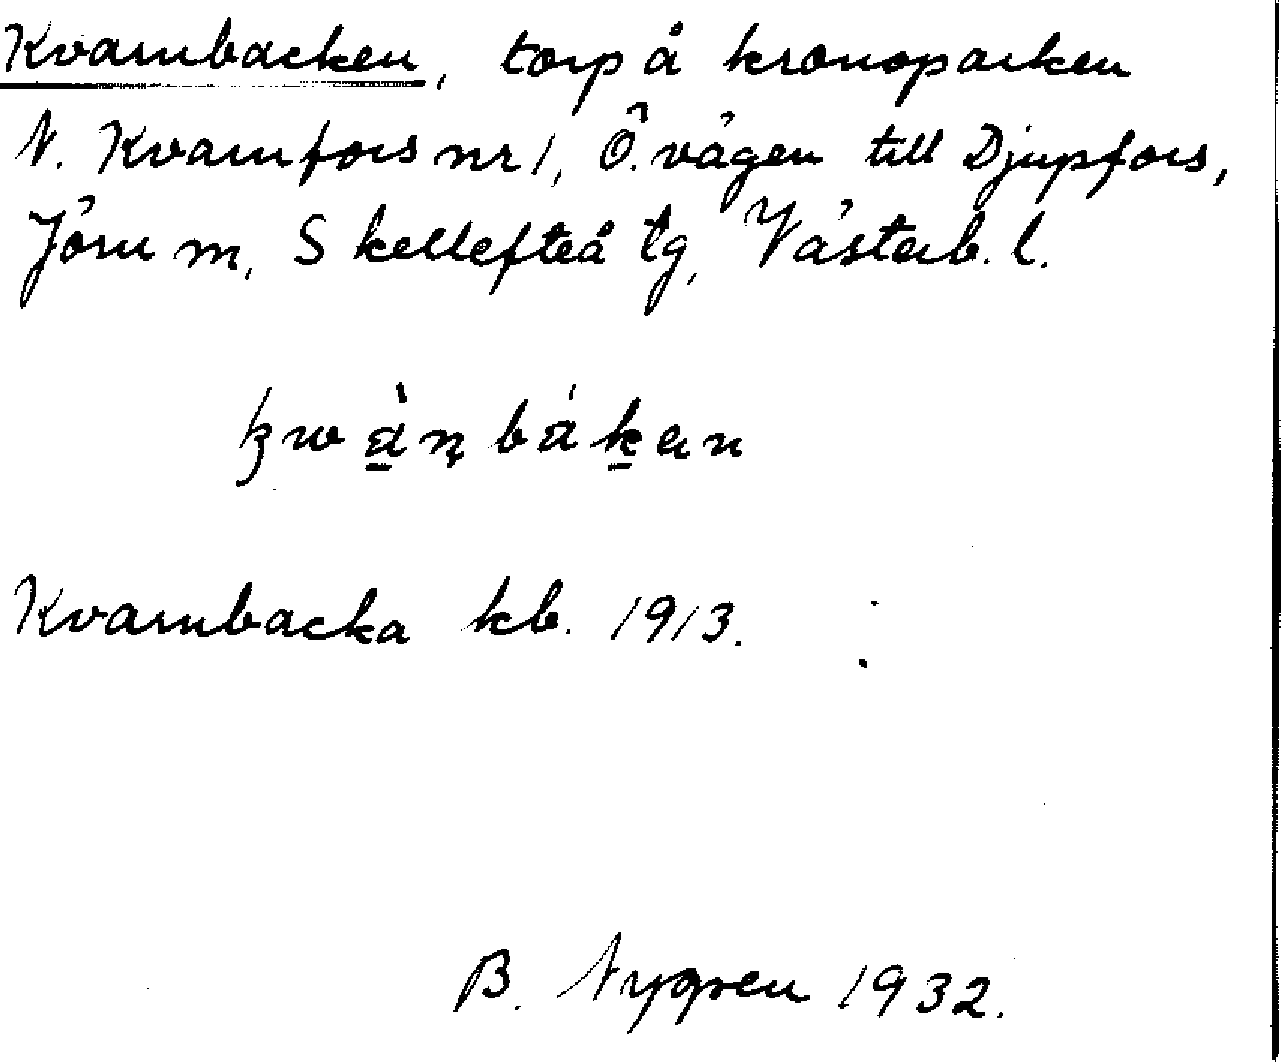 Kvarnbacken, torp å kronoparken
N. Kvarnfors nr 1, Ö. vägen till Djupfors,
Jörn m, Skellefteå tg, Västerb. l.
Kvarnbacka kb. 1913.
B. Nygren 1932.